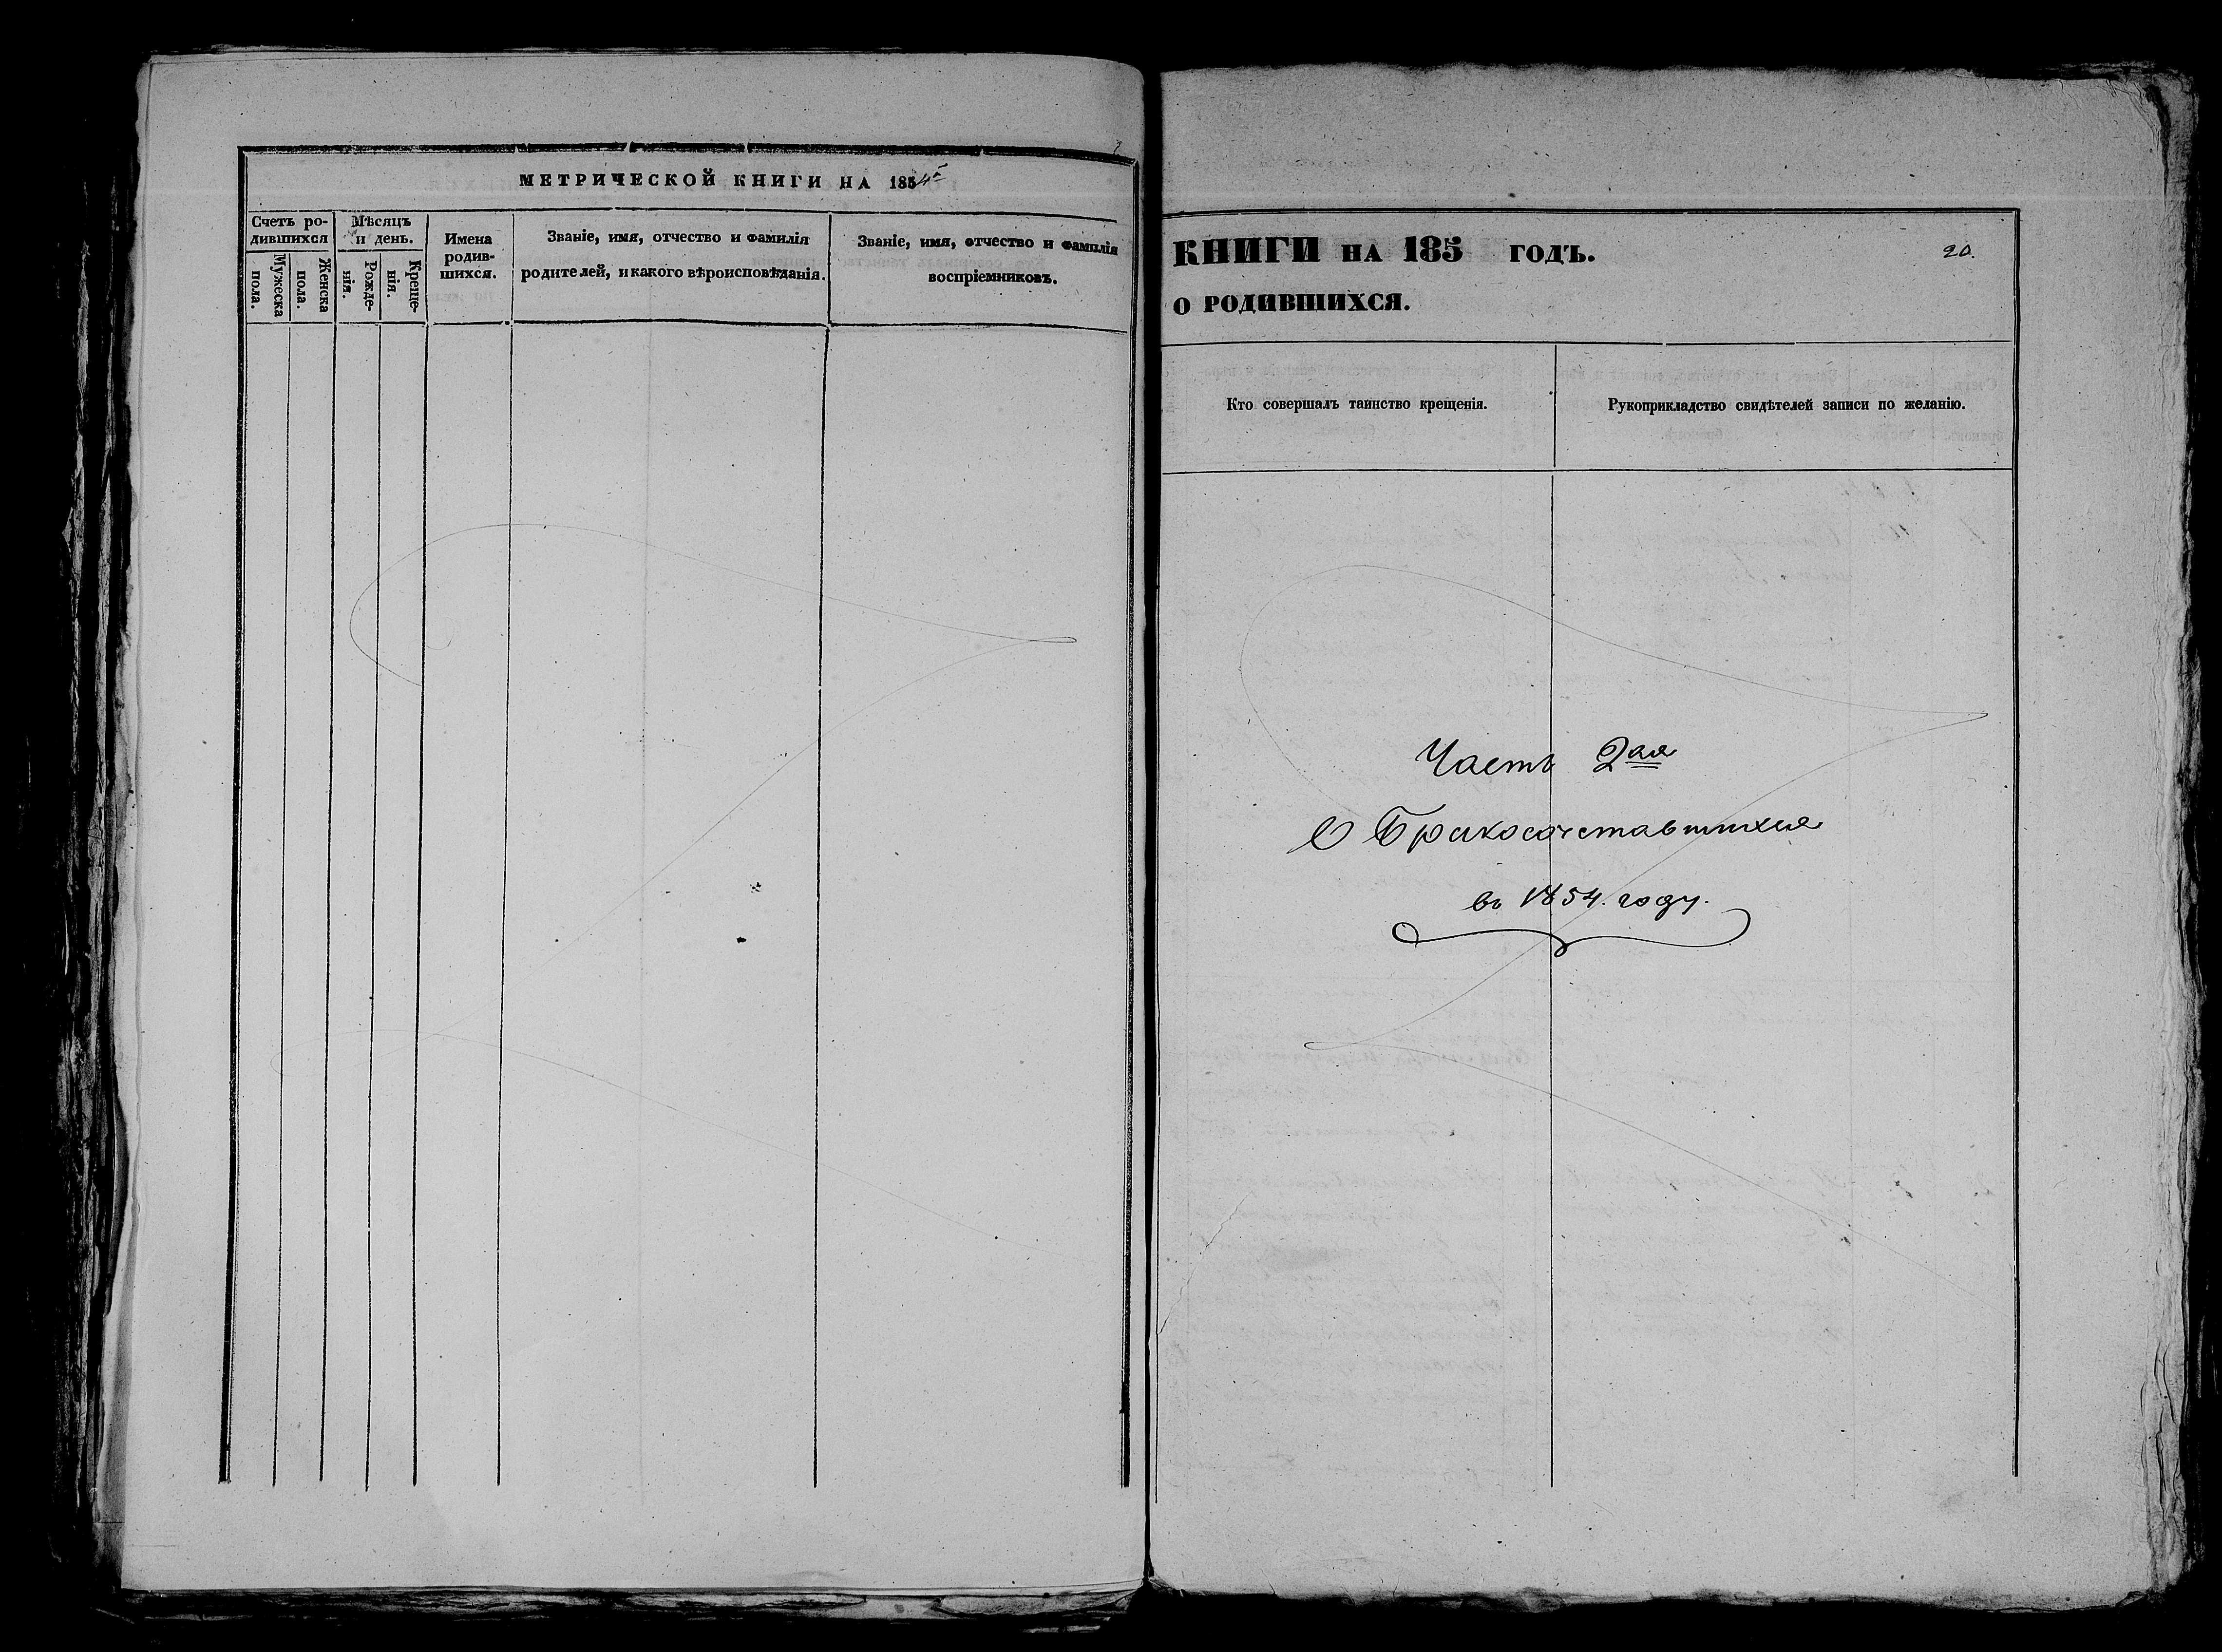 МЕТРИЧЕСКОЙ КНИГИ НА 1854й
Счетъ ро-
дившихся
Мужеска
пола.
Женска
пола.
Мѣсяцъ
и день.
Рожде-
нія.
Креще-
нія.
Имена
родив-
шихся.
Званіе, имя, отчество и фамилія
родителей, и какого вѣроисповѣданія.
Званіе, имя, отчество и фамилія
воспріемниковъ.
КНИГИ НА 185 ГОДЪ.
20.
О РОДИВШИХСЯ.
Кто совершалъ таинство крещенія.
Рукоприкладство свидѣтелей записи по желанію.
Часть 2ая
О Бракосочетавшихся
въ 1854. году.